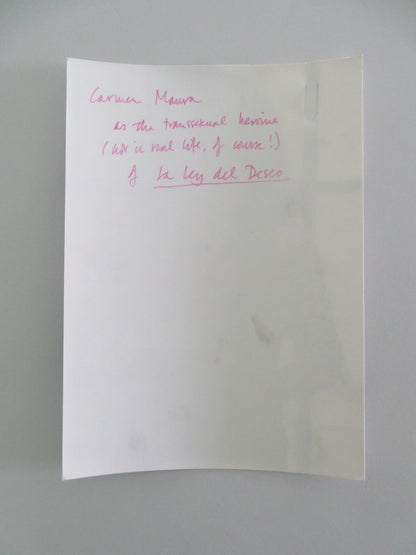 Carmen Maura
as the transsexual heroine
(not in real life, of course!)
of La Ley del Deseo